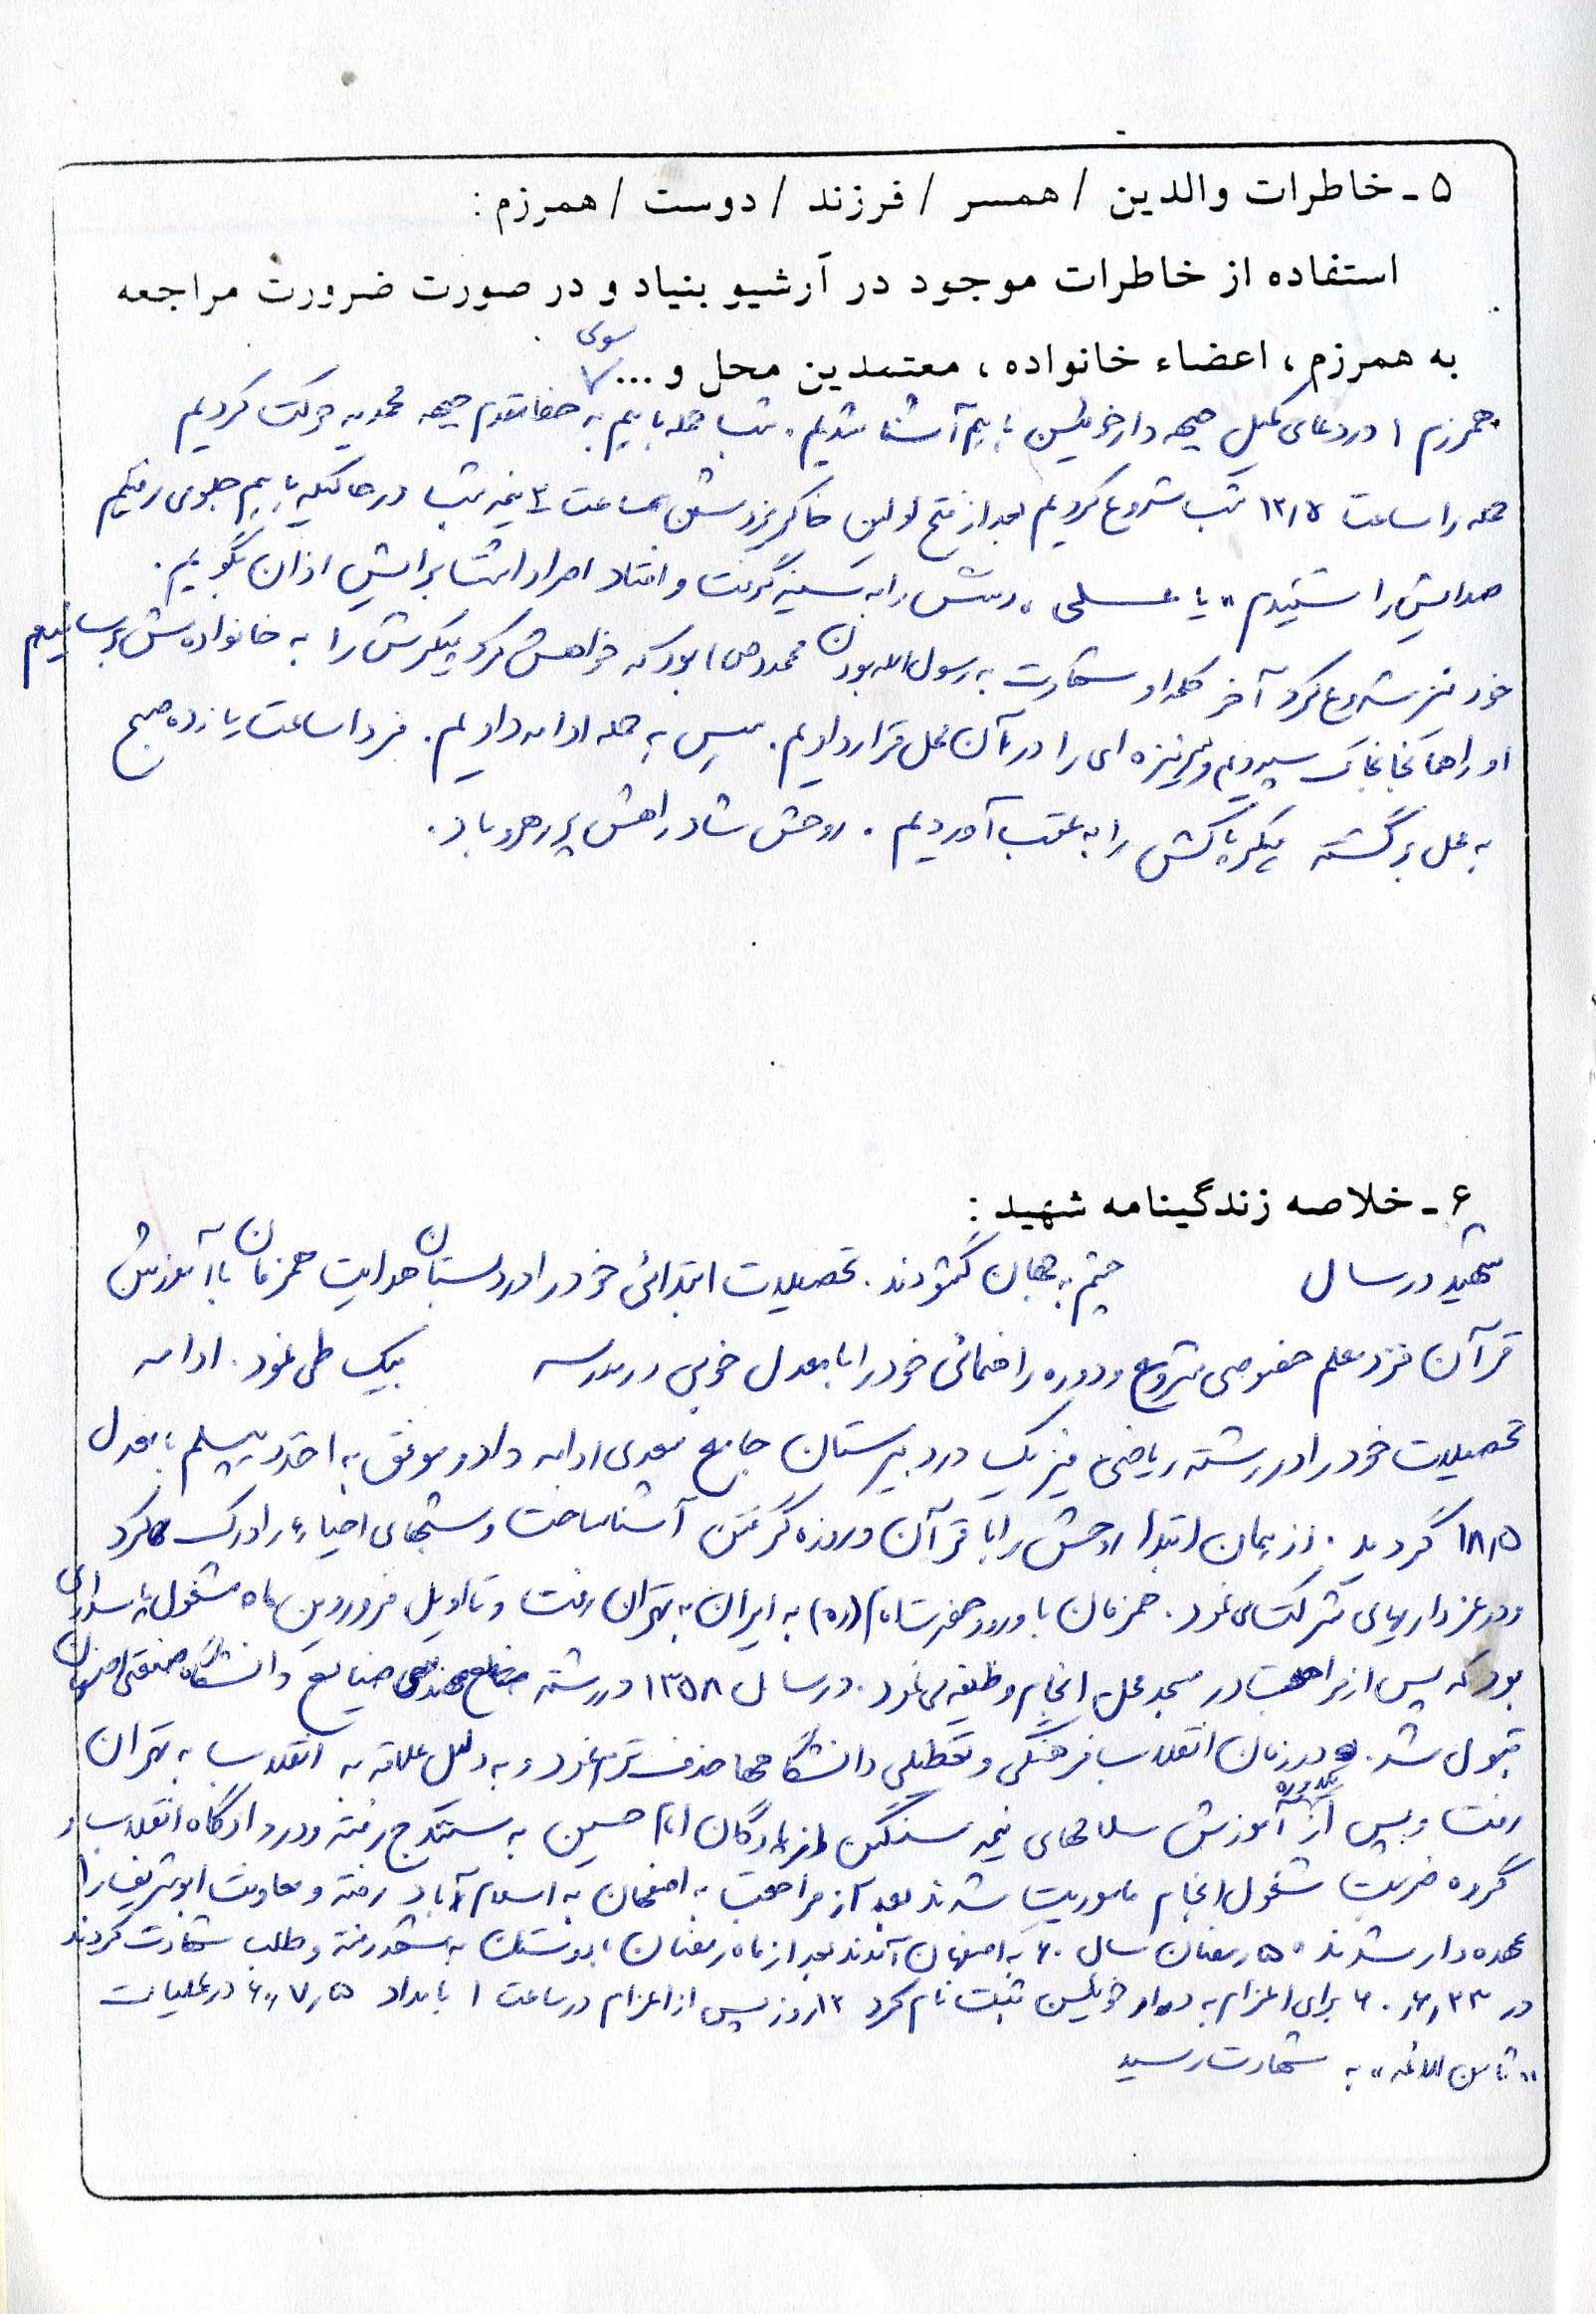 ۵ ـ خاطرات والدین / همسر / فرزند / دوست / همرزم :
استفاده از خاطرات موجود در آرشیو بنیاد و در صورت ضرورت مراجعه
به همرزم ، اعضاء خانواده ، معتمدین محل و ...
سوی
همرزم ۱ در دعای کمیل جبهه دارخوئین با هم آشنا شدیم . شب حمله با هم به خط مقدم جبهه محمدیه حرکت کردیم
حمله را ساعت ۱۲/۵ شب شروع کردیم بعد از فتح اولین خاکریز دشمن ساعت ۳ نیمه شب در حالیکه با هم جلو می رفتیم
صدایش را شنیدم " یا علی " دستش را به سینه گرفت و افتاد اصرار داشت برایش اذان بگویم .
خود نیز شروع کرد آخر کلمه او شهادت به رسول الله بودن محمد (ص) بود که خواهش کرد پیکرش را به خانواده‌اش برسانیم
او را همانجا بخاک سپردیم و سرنیزه ای را در آن محل قرار دادیم . سپس به حمله ادامه دادیم . فردا ساعت یازده صبح
به محل برگشته پیکر پاکش را به عقب آوردیم . روحش شاد راهش پر رهرو باد .
۶ ـ خلاصه زندگینامه شهید :
شهید در سال چشم به جهان گشودند . تحصیلات ابتدائی خود را در دبستان هدایت همزمان با آموزش
قرآن نزد معلم خصوصی شروع و دوره راهنمائی خود را با معدل خوبی در مدرسه بیک طی نمود . ادامه
تحصیلات خود را در رشته ریاضی فیزیک در دبیرستان جامع سعدی ادامه داد و موفق به اخذ دیپلم با معدل
۱۸/۵ گردید . از همان ابتدا روحش را با قرآن و روزه گرفتن آشنا ساخت و شبهای احیاء را درک کرد
و در عزاداریهای شرکت می نمود . همزمان با ورود حضرت امام (ره) به ایران به تهران رفت و تا اوایل فروردین ماه مشغول پاسداری
بود که پس از مراجعت در مسجد محل انجام وظیفه می نمود . در سال ۱۳۵۸ در رشته صنایع دانشگاه صنعتی اصفهان
قبول شد . و در زمان انقلاب فرهنگی و تعطیلی دانشگاهها حذف ترم نمود و به دلیل علاقه به انقلاب به تهران
رفت و پس از یکدوره آموزش سلاحهای نیمه سنگین از پادگان امام حسین به سنندج رفته و در دادگاه انقلاب و
گروه ضربت مشغول انجام ماموریت شدند بعد از مراجعت به اصفهان به اسلام آباد رفته و معاونت ابوشریف را
عهده دار شدند ۵ رمضان سال ۶۰ به اصفهان آمدند بعد از ماه رمضان با دوستان به مشهد رفته و طلب شهادت کردند
در ۶۰/۶/۲۳ برای اعزام به دارخوئین ثبت نام کرد ۱۲ روز پس از اعزام در ساعت ۱ بامداد ۶۰/۷/۵ در عملیات
" ثامن الائمه " به شهادت رسید